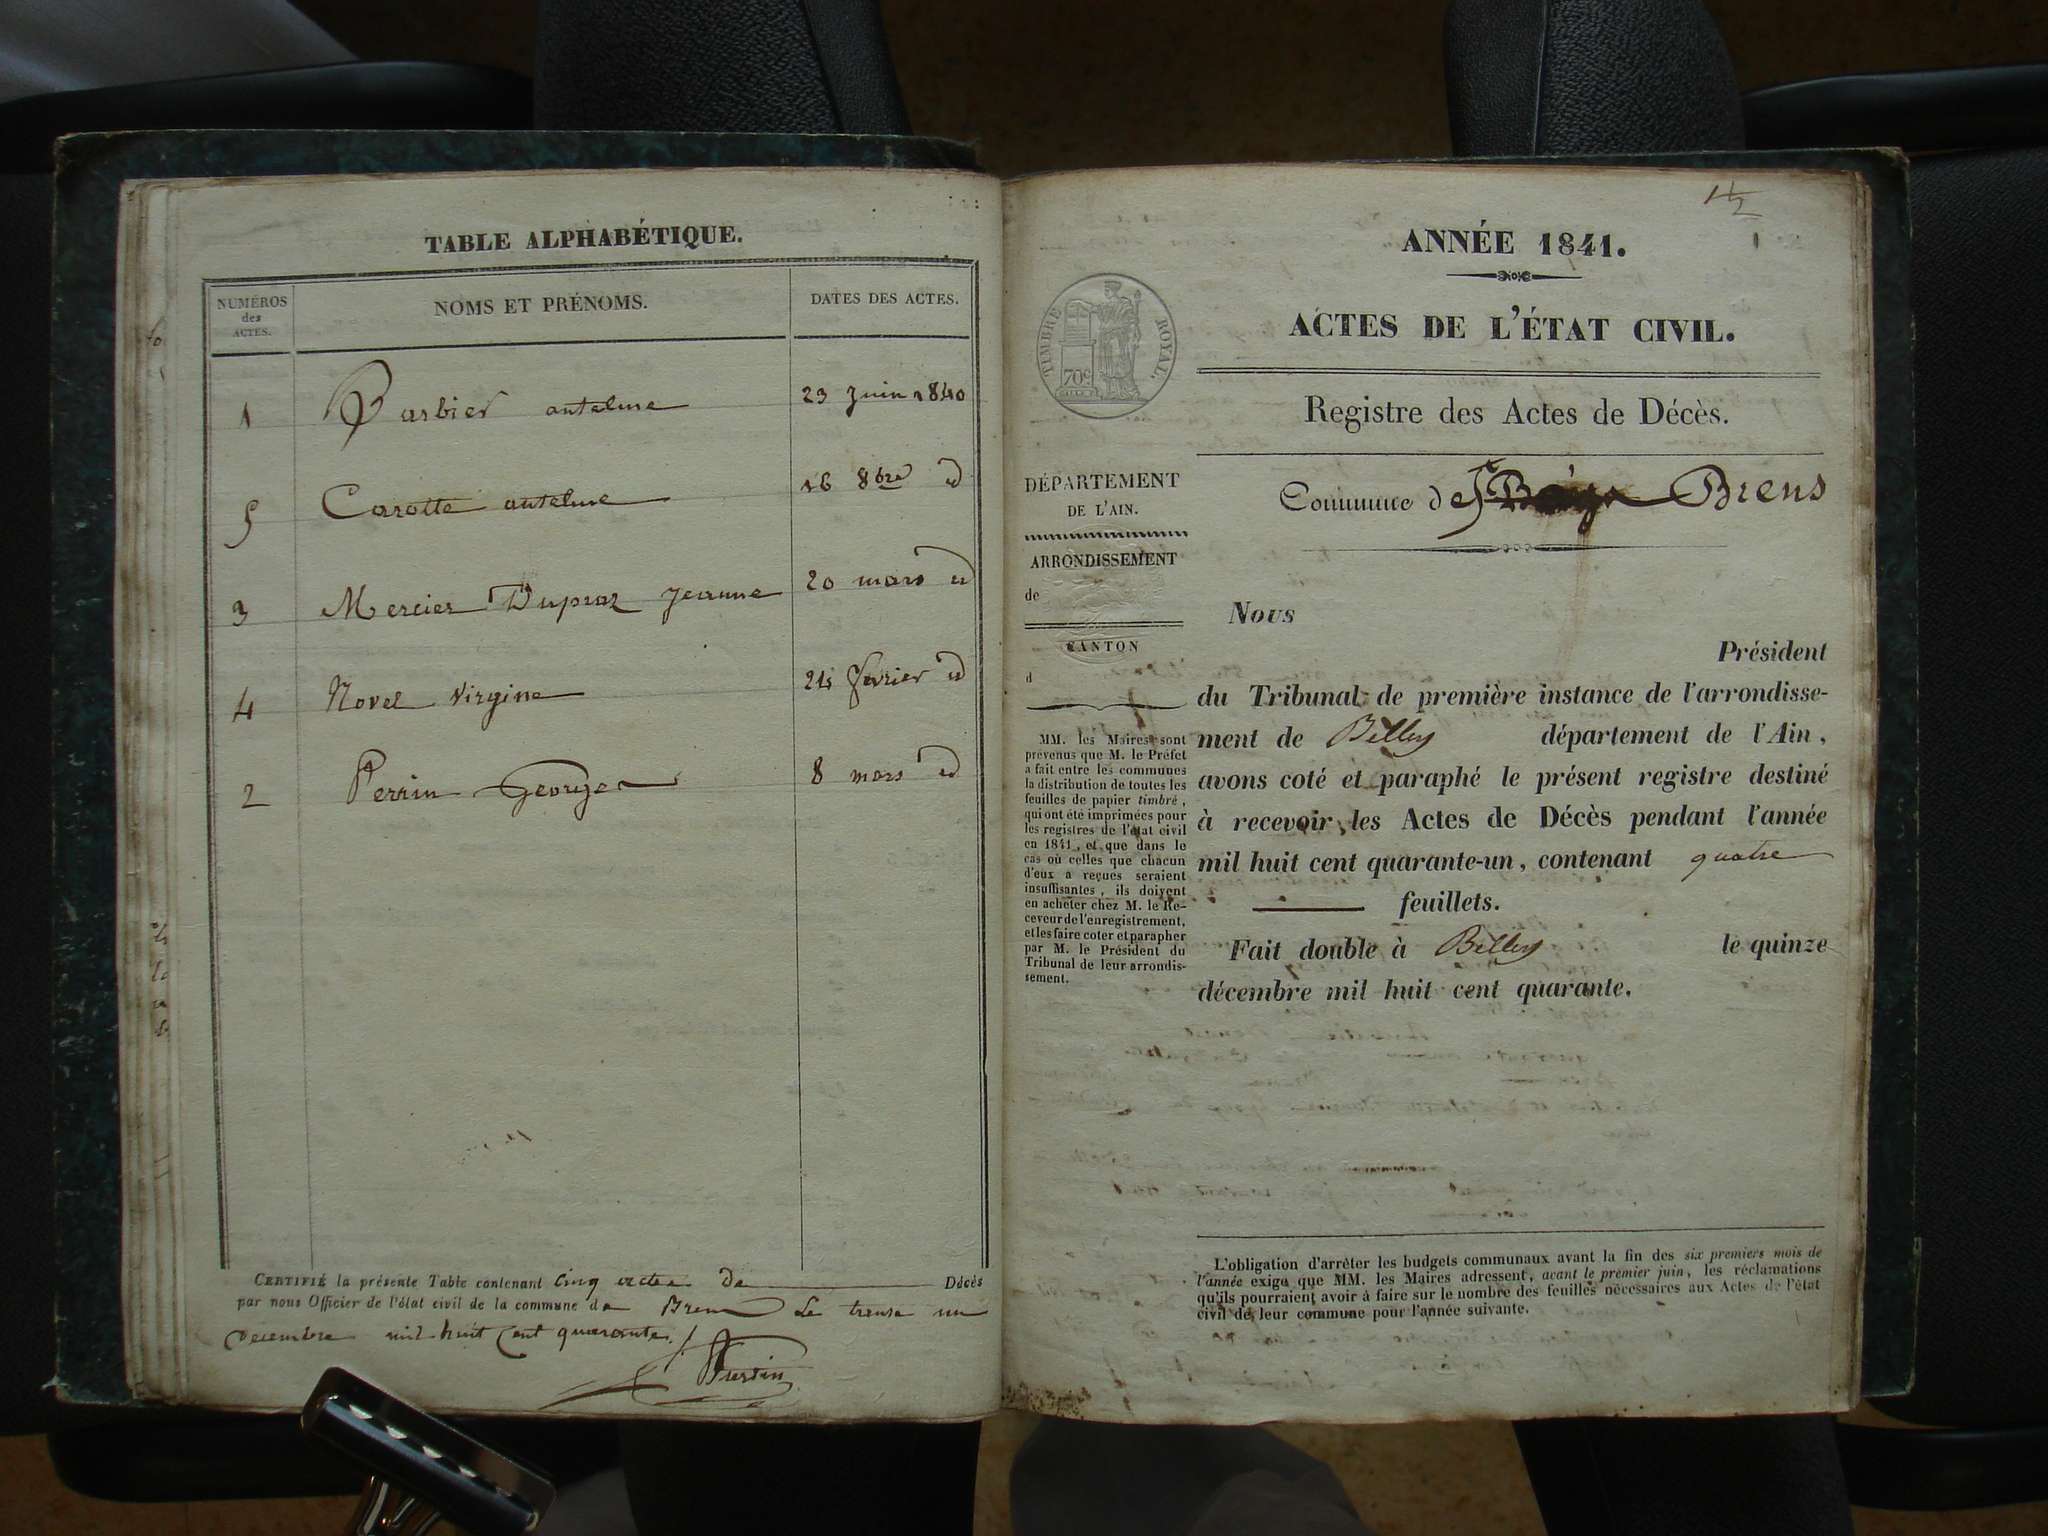 TABLE ALPHABÉTIQUE.
NUMÉROS des ACTES.
NOMS ET PRÉNOMS.
DATES DES ACTES.
1 Barbier antelme 23 Juin 1840
5 Carotte antelme 16 8bre id
3 Mercier Dupraz Jeanne 20 mars id
4 Novel Virginie 24 février id
2 Perrin George 8 mars id
CERTIFIÉ la présente Table contenant cinq actes de Décès
par nous Officier de l'état civil de la commune de Brens Le trente un
decembre mil huit cent quarante.
ANNÉE 1841.
1
ACTES DE L'ÉTAT CIVIL.
TIMBRE ROYAL.
70c
Registre des Actes de Décès.
Commune de Brens
DÉPARTEMENT
DE L'AIN.
ARRONDISSEMENT
de
CANTON
d
MM. les Maires sont
prévenus que M. le Préfet
a fait entre les communes
la distribution de toutes les
feuilles de papier timbré,
qui ont été imprimées pour
les registres de l'état civil
en 1841, et que dans le
cas où celles que chacun
d'eux a reçues seraient
insuffisantes, ils doivent
en acheter chez M. le Re-
ceveur de l'enregistrement,
et les faire coter et parapher
par M. le Président du
Tribunal de leur arrondis-
sement.
Nous
Président
du Tribunal de première instance de l'arrondisse-
ment de Belley département de l'Ain,
avons coté et paraphé le présent registre destiné
à recevoir les Actes de Décès pendant l'année
mil huit cent quarante-un, contenant quatre
feuillets.
Fait double à Belley le quinze
décembre mil huit cent quarante.
L'obligation d'arrêter les budgets communaux avant la fin des six premiers mois de
l'année exige que MM. les Maires adressent, avant le premier juin, les réclamations
qu'ils pourraient avoir à faire sur le nombre des feuilles nécessaires aux Actes de l'état
civil de leur commune pour l'année suivante.